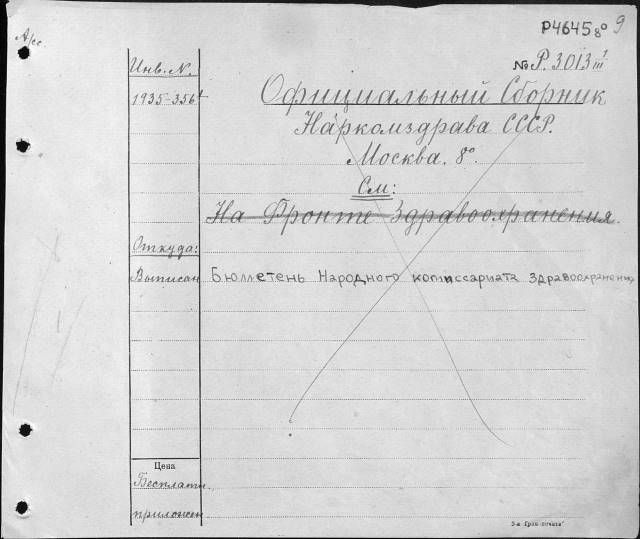 Р4645 8° 9
№ Р.3013 III 1
Инв. N.
1935-356
Официальный Сборник
Наркомздрава СССР.
Москва. 8°.
См:
На Фронте Здравоохранения.
Откуда:
Выписан
Бюллетень Народного комиссариата Здравоохранения
Цена
Бесплатн.
приложен